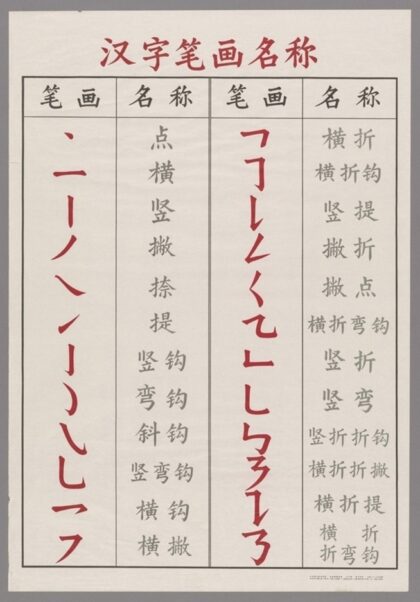 汉字笔画名称
笔画 名称 笔画 名称
点 横折
横 横折钩
竖 竖提
撇 撇折
捺 撇点
提 横折弯钩
竖钩 竖折
弯钩 竖弯
斜钩 竖折折钩
竖弯钩 横折折撇
横钩 横折提
横撇 横折
折弯钩